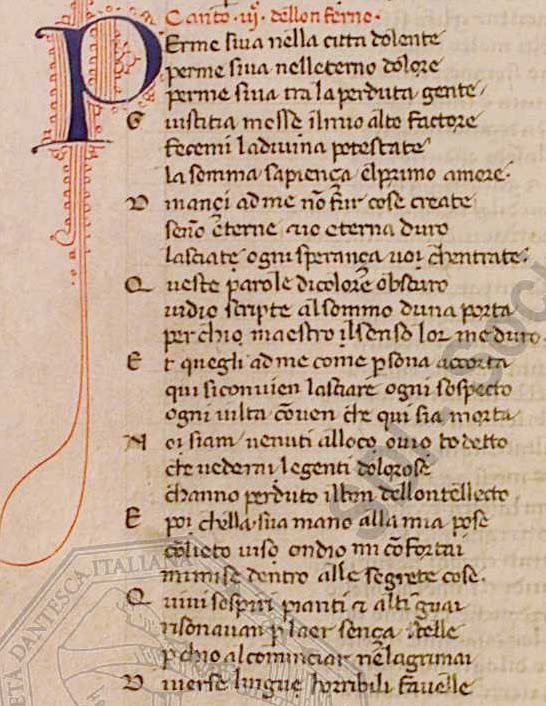 Canto .iij. dellonferno.
PErme siva nella citta dolente
perme siva nelleterno dolore
perme siva tra la perduta gente
Giustitia mosse ilmio alto factore
fecemi la divina potestate
la somma sapiença elprimo amore.
Dinançi ad me nõ fur cose create
senõ eterne et io eterna duro
lasciate ogni sperança voi chentrate.
Queste parole dicolore obscuro
vidio scripte alsommo duna porta
per chio maestro ilsenso lor me duro.
Et quegli ad me come psona accorta
qui siconvien lasciare ogni sospecto
ogni vilta cõven che qui sia morta
Noi siam venuti alloco ovio to detto
che vederai legenti dolorose
channo perduto ilben dellontellecto
Epoi chella sua mano alla mia pose
cõlieto viso ondio mi cõfortai
mimise dentro alle segrete cose.
Quivi sospiri pianti et alti guai
risonavan p laer sença stelle
p chio alcominciar nelagrimai
Diverse lingue horribili favelle
SOCIETÀ DANTESCA ITALIANA